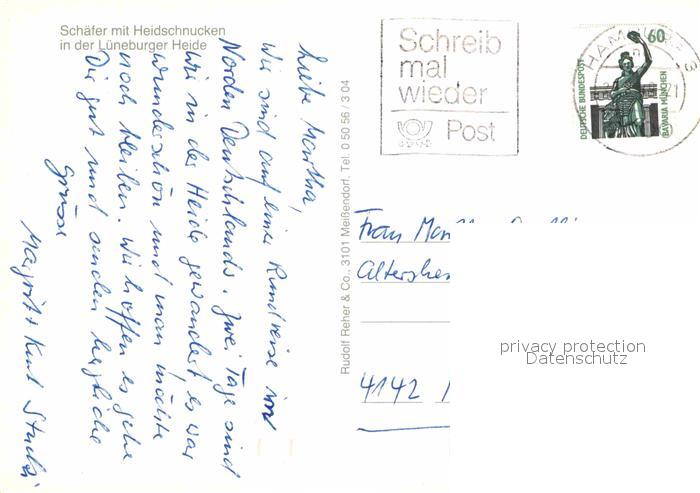 Schäfer mit Heidschnucken
in der Lüneburger Heide
Liebe Martha,
Wir sind auf einer Rundreise im
Norden Deutschlands. Zwei Tage sind
wir in der Heide gewandert, es war
wunderschön und man möchte
noch bleiben. Wir hoffen es gehe
Dir gut und senden herzliche
Grüsse
Margrit + Kurt
Rudolf Reher & Co., 3101 Meißendorf, Tel. 0 50 56 / 3 04
Schreib
mal
wieder
Post
60
DEUTSCHE BUNDESPOST
BAVARIA MÜNCHEN
Frau
4142
privacy protection
Datenschutz